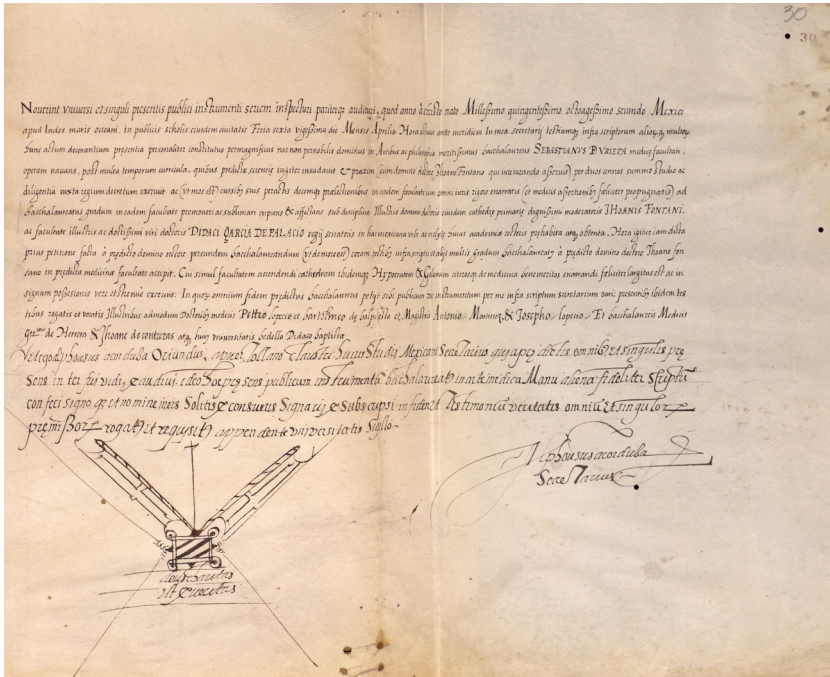 30
30
Nouerint vniuersi et singuli presentis publici instrumenti seriem inspecturi pariterqȝ audituri, quod anno à christo nato Millessimo quingentessimo octoagessimo secundo Mexici
apud Indos maris occeani. in publicis scholis eiusdem ciuitatis Feria sexta vigessima die Mensis Aprilis Hora ante meridiem In mea secretarij testiumqȝ infra scriptorum
hunc actum decorantium presentia personaliter constitutus permagnificus nec non pernobilis dominus in Artibus ac philosophia meritissimus bacchalaureus SEBASTIANVS medicę facultati,
operam nauans, post multa temporum curricula, quibus predictę scientię iugiter insudauit & praxim (cum domino Ihone Fontano qui iurando asseruit) per duos annos summo studio ac
diligentia iuxta regium decretum exercuit ac (vt mos est) cursibus suis peractis decemqȝ pręlectionibus in eadem facultatem omni iuris rigore enarratis (et medicis assertionibus foeliciter propugnatis) ad
bacchalaureatus gradum in eadem facultate promoueri ac sublimari cupiens & affectans sub disciplina Illustris domini doctoris eiusdem cathedrę primarię dignissimi moderatoris IHOANIS FONTANI.
ac facultate illustris ac doctissimi viri doctoris DIDACI GARCIA DE PALACIO regij senatoris in hac mexicana vrbe huius academię rectoris prehabita atqȝ obtenta. Hora igitur iam dicta
prius petitione facta à predicto domino rectore pręeundem bacchalaureandum (vt de more est) coram ptibus infrascriptis multis gradum bacchalaureatus à predicto domino doctore Jhoane Fon
tano in predicta medicina facultate accepit. Cui simul facultatem ascendendi cathedram ibidemqȝ Hypocratem & Galenum cęterosqȝ de medicina benemeritos enarrandi foeliciter largitus est ac in
signum possessionis vere et strenue exercuit. In quorum omnium fidem predictus bacchalaureus petijt sibi publicum instrumentum per me infra scriptum secretarium dari: presentibus ibidem tes
tibus rogatis et vocatis Illustribus admodum Doctoribus medicis Petro lopecio et bartolomeo et, Magistris Antonio Muniver & Josepho lopecio, Et bachalaureis Medicis
de Herrera & Jhoane de contreras atqȝ huius vniuersitatis bedello Didaco baptista
Et ego Alphonsus a corduba Oriundus, huius Studij Mexicani Secretarius quia pre omnibꝰ et singulis prę
sens interfui vidi, & audiui. ideo hoc pręsens publicum instrumentum bachalaureatus in arte medica Manu aliena fideliter scriptum
confeci signoqȝ et nomine meis Solitis & consuetis Signaui & Subscripsi in fidem et testimonium veritatis omnium et singulorum
pręmissorum rogatꝰ et requisitꝰ appendente vniuersitatis Sigillo
Alphonsus a corduba
Secretarius
est & veritas